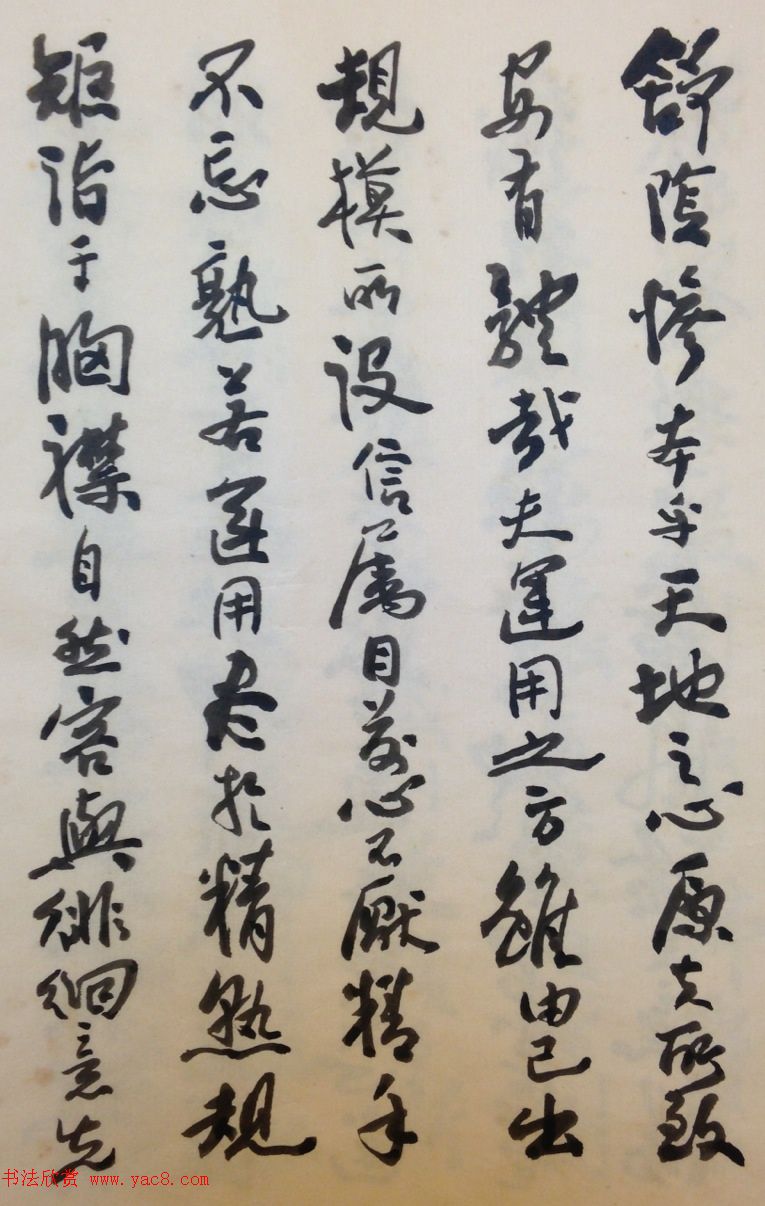 舒陰慘本乎天地之心原夫所致
安有體哉夫運用之方雖由己出
規模所設信屬目前心不厭精手
不忘熟若運用尽於精熟規
矩諳于胸襟自然容與徘徊意先
书法欣赏 www.yac8.com